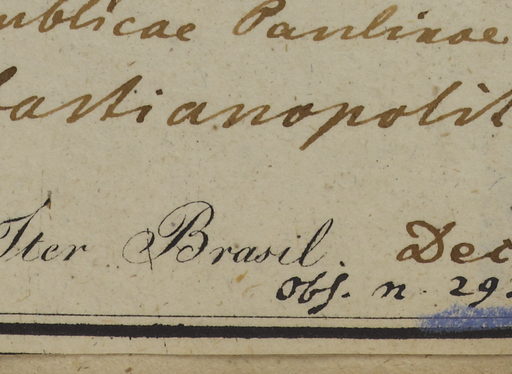 ublicae Paulinae
bastianopolit
Iter Brasil. Dec
Obs. n. 29